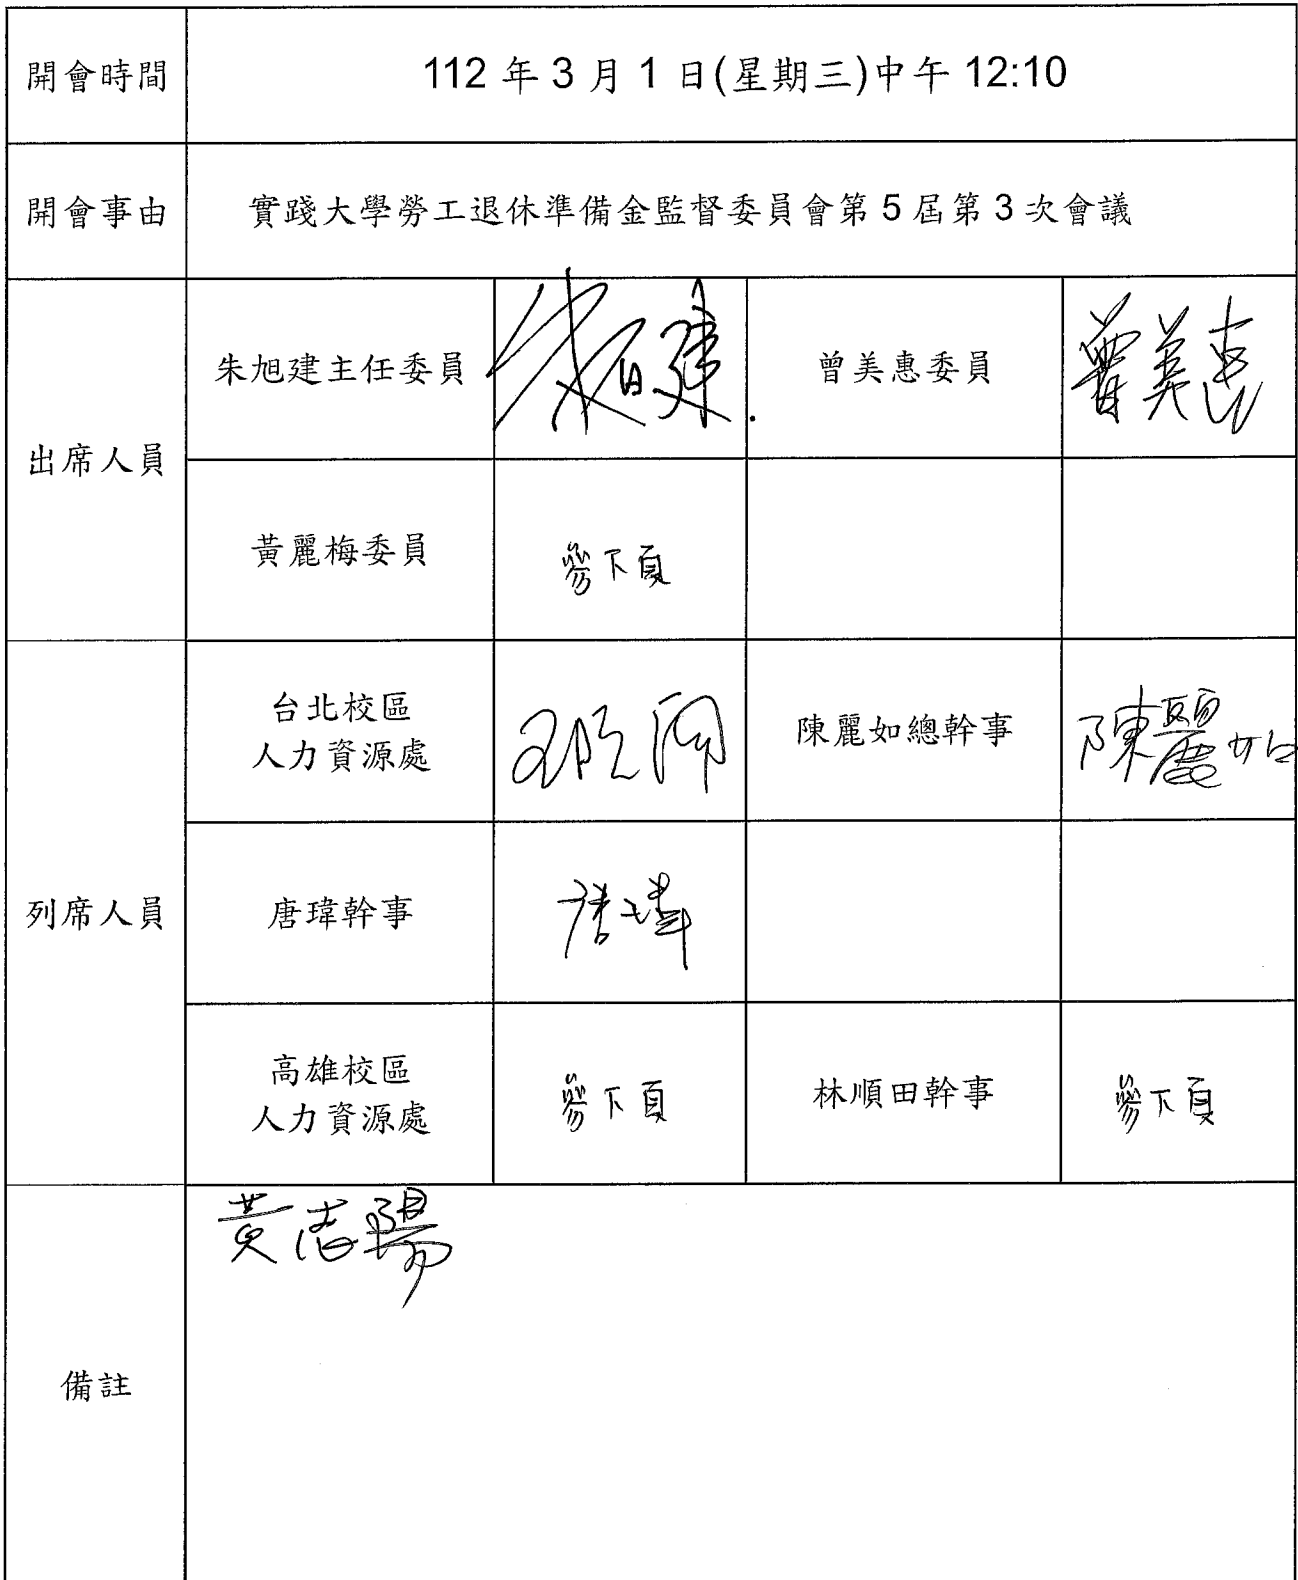 開會時間
112 年 3 月 1 日(星期三)中午 12:10
開會事由
實踐大學勞工退休準備金監督委員會第 5 屆第 3 次會議
出席人員
朱旭建主任委員
朱旭建
曾美惠委員
曾美惠
黃麗梅委員
參下頁
列席人員
台北校區
人力資源處
陳麗如總幹事
陳麗如
唐瑋幹事
唐瑋
高雄校區
人力資源處
參下頁
林順田幹事
參下頁
備註
黃志揚